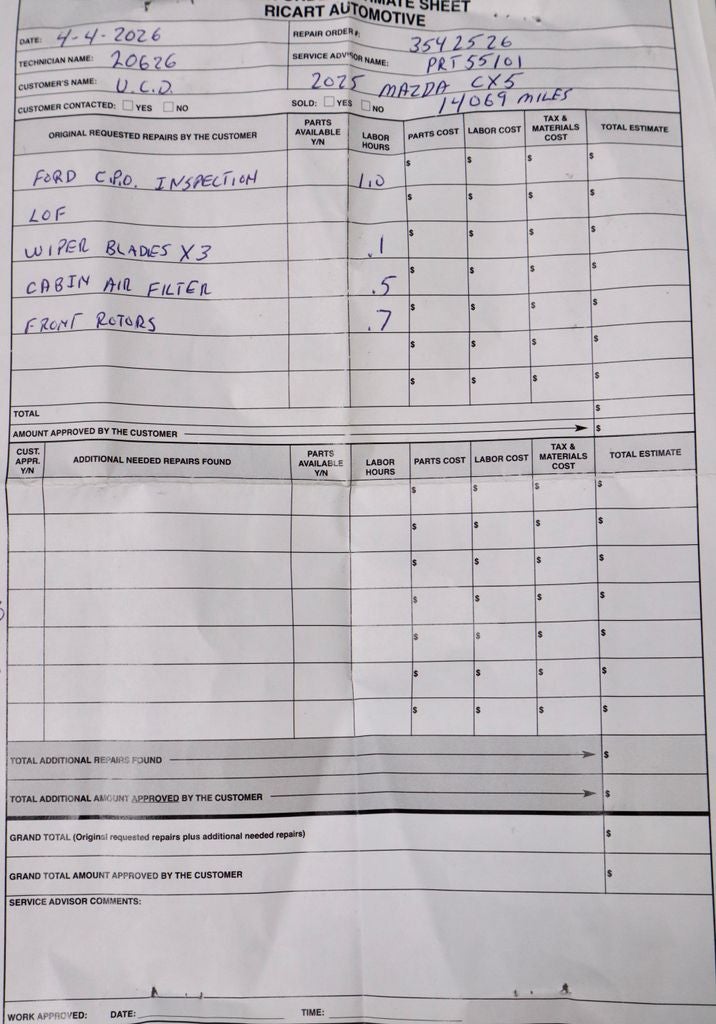 MATE SHEET
RICART AUTOMOTIVE
DATE: 4-4-2026
REPAIR ORDER #: 3542526
TECHNICIAN NAME: 20626
SERVICE ADVISOR NAME: PRT55101
CUSTOMER'S NAME: U.C.D.
2025 MAZDA CX5
CUSTOMER CONTACTED: ☐ YES ☐ NO
SOLD: ☐ YES ☐ NO
14069 MILES
ORIGINAL REQUESTED REPAIRS BY THE CUSTOMER PARTS AVAILABLE Y/N LABOR HOURS PARTS COST LABOR COST TAX & MATERIALS COST TOTAL ESTIMATE
FORD C.P.O. INSPECTION 1.0 $ $ $ $
LOF $ $ $ $
WIPER BLADES X3 .1 $ $ $ $
CABIN AIR FILTER .5 $ $ $ $
FRONT ROTORS .7 $ $ $ $
$ $ $ $
$ $ $ $
TOTAL $
AMOUNT APPROVED BY THE CUSTOMER $
CUST. APPR. Y/N ADDITIONAL NEEDED REPAIRS FOUND PARTS AVAILABLE Y/N LABOR HOURS PARTS COST LABOR COST TAX & MATERIALS COST TOTAL ESTIMATE
$ $ $ $
$ $ $ $
$ $ $ $
$ $ $ $
$ $ $ $
$ $ $ $
$ $ $ $
TOTAL ADDITIONAL REPAIRS FOUND $
TOTAL ADDITIONAL AMOUNT APPROVED BY THE CUSTOMER $
GRAND TOTAL (Original requested repairs plus additional needed repairs) $
GRAND TOTAL AMOUNT APPROVED BY THE CUSTOMER $
SERVICE ADVISOR COMMENTS:
WORK APPROVED: DATE: TIME: